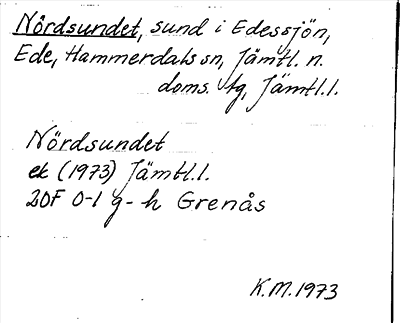 Nördsundet, sund i Edessjön,
Ede, Hammerdals sn, Jämtl. n.
doms. tg, Jämtl.l.
Nördsundet
ek (1973) Jämtl.l.
20F 0-1 g-h Grenås
K.M. 1973